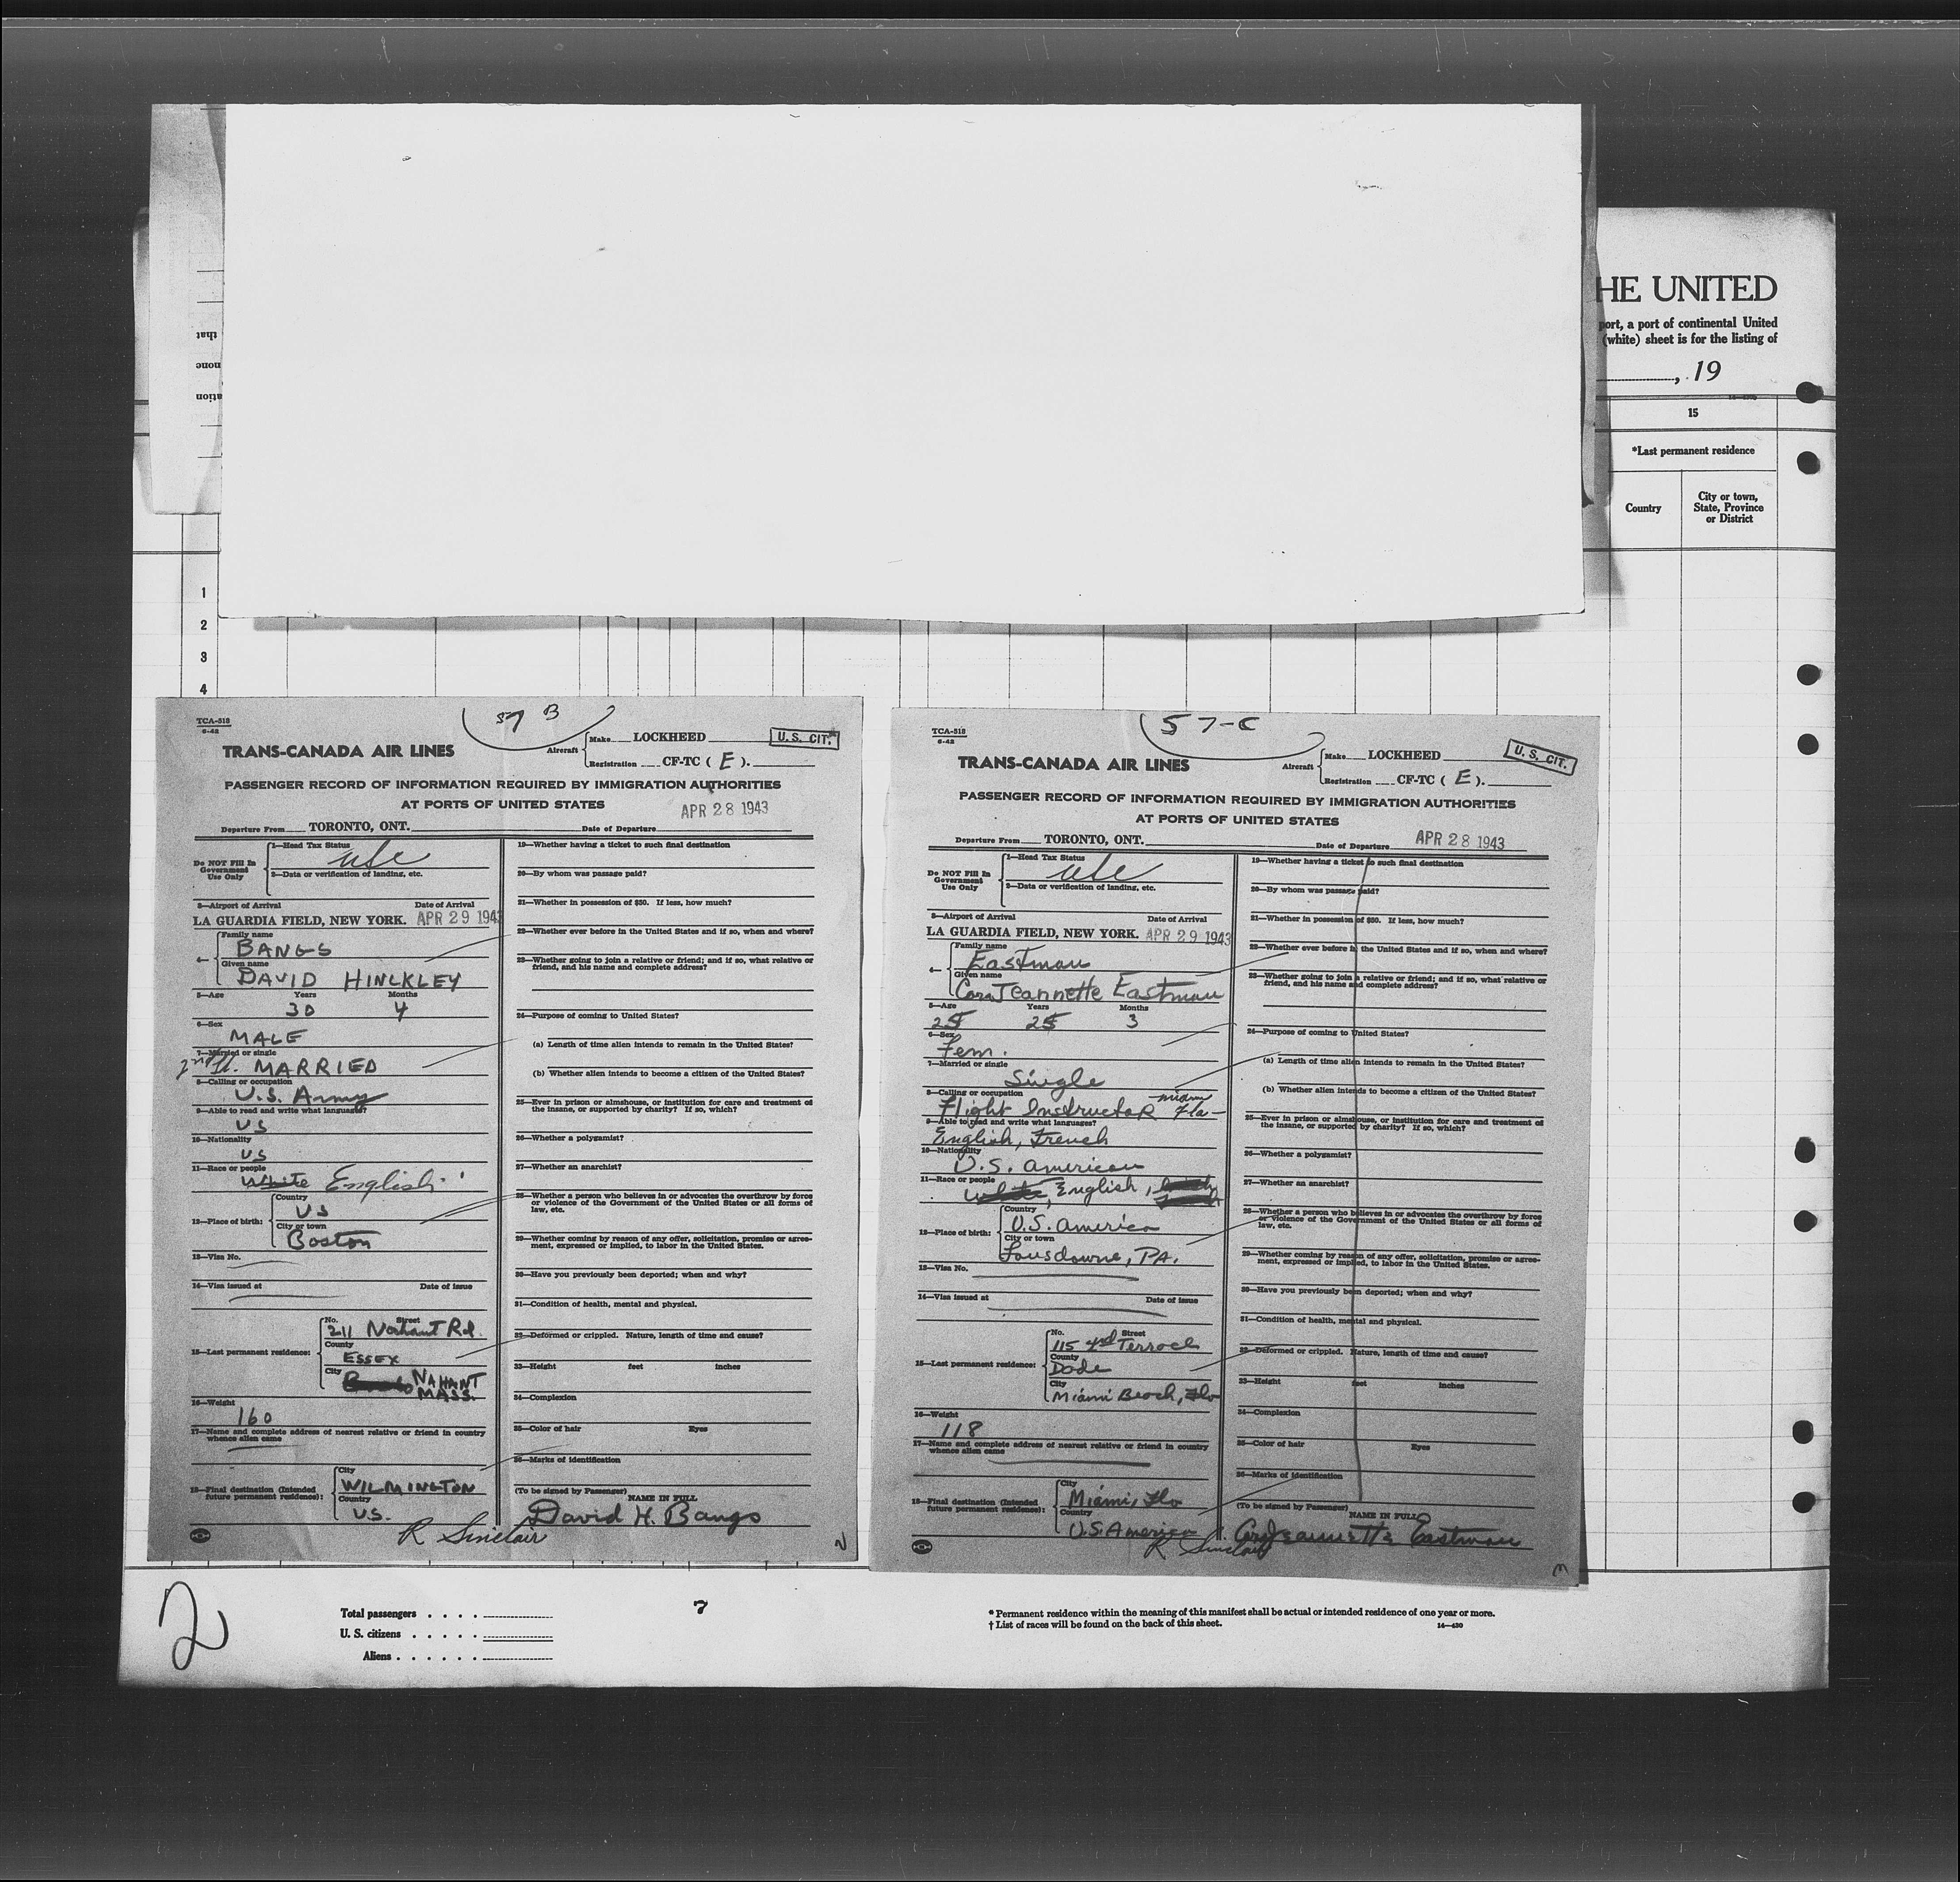 HE UNITED
port, a port of continental United
(white) sheet is for the listing of
, 19
15
*Last permanent residence
Country
City or town,
State, Province
or District
that
none
ation
1
2
3
4
TCA-518
6-42
57 B
TRANS-CANADA AIR LINES
Aircraft
Make LOCKHEED
Registration CF-TC ( E ).
U. S. CIT.
PASSENGER RECORD OF INFORMATION REQUIRED BY IMMIGRATION AUTHORITIES
AT PORTS OF UNITED STATES
APR 28 1943
Departure From TORONTO, ONT. Date of Departure
Do NOT Fill In
Government
Use Only
1—Head Tax Status
usc
2—Data or verification of landing, etc.
3—Airport of Arrival Date of Arrival
LA GUARDIA FIELD, NEW YORK. APR 29 1943
4—
Family name
BANGS
Given name
DAVID HINCKLEY
5—Age Years Months
30 4
6—Sex
MALE
7—Married or single
2nd Lt. MARRIED
8—Calling or occupation
U.S. Army
9—Able to read and write what languages?
US
10—Nationality
US
11—Race or people
White English
12—Place of birth:
Country
US
City or town
Boston
13—Visa No.
14—Visa issued at Date of issue
15—Last permanent residence:
No. Street
211 Nahant Rd.
County
ESSEX
City
NAHANT
MASS.
16—Weight
160
17—Name and complete address of nearest relative or friend in country
whence alien came
18—Final destination (Intended
future permanent residence):
City
WILMINGTON
Country
US.
19—Whether having a ticket to such final destination
20—By whom was passage paid?
21—Whether in possession of $50. If less, how much?
22—Whether ever before in the United States and if so, when and where?
23—Whether going to join a relative or friend; and if so, what relative or
friend, and his name and complete address?
24—Purpose of coming to United States?
(a) Length of time alien intends to remain in the United States?
(b) Whether alien intends to become a citizen of the United States?
25—Ever in prison or almshouse, or institution for care and treatment of
the insane, or supported by charity? If so, which?
26—Whether a polygamist?
27—Whether an anarchist?
28—Whether a person who believes in or advocates the overthrow by force
or violence of the Government of the United States or all forms of
law, etc.
29—Whether coming by reason of any offer, solicitation, promise or agree-
ment, expressed or implied, to labor in the United States.
30—Have you previously been deported; when and why?
31—Condition of health, mental and physical.
32—Deformed or crippled. Nature, length of time and cause?
33—Height feet inches
34—Complexion
35—Color of hair Eyes
36—Marks of identification
(To be signed by Passenger)
NAME IN FULL
David H. Bangs
R Sinclair
TCA-518
6-42
57-C
TRANS-CANADA AIR LINES
Aircraft
Make LOCKHEED
Registration CF-TC ( E ).
U. S. CIT.
PASSENGER RECORD OF INFORMATION REQUIRED BY IMMIGRATION AUTHORITIES
AT PORTS OF UNITED STATES
Departure From TORONTO, ONT. Date of Departure APR 28 1943
Do NOT Fill In
Government
Use Only
1—Head Tax Status
usc
2—Data or verification of landing, etc.
3—Airport of Arrival Date of Arrival
LA GUARDIA FIELD, NEW YORK. APR 29 1943
4—
Family name
Eastman
Given name
Cora Jeannette Eastman
5—Age Years Months
25 25 3
6—Sex
Fem.
7—Married or single
Single
8—Calling or occupation
Flight Instructor Miami Fla—
9—Able to read and write what languages?
English, French
10—Nationality
U.S. American
11—Race or people
White, English,
12—Place of birth:
Country
U.S. America
City or town
Lansdowne, PA.
13—Visa No.
14—Visa issued at Date of issue
15—Last permanent residence:
No. Street
115 4rd Terrace
County
Dade
City
Miami Beach, Fla
16—Weight
118
17—Name and complete address of nearest relative or friend in country
whence alien came
18—Final destination (Intended
future permanent residence):
City
Miami, Fla
Country
U.S. America
19—Whether having a ticket to such final destination
20—By whom was passage paid?
21—Whether in possession of $50. If less, how much?
22—Whether ever before in the United States and if so, when and where?
23—Whether going to join a relative or friend; and if so, what relative or
friend, and his name and complete address?
24—Purpose of coming to United States?
(a) Length of time alien intends to remain in the United States?
(b) Whether alien intends to become a citizen of the United States?
25—Ever in prison or almshouse, or institution for care and treatment of
the insane, or supported by charity? If so, which?
26—Whether a polygamist?
27—Whether an anarchist?
28—Whether a person who believes in or advocates the overthrow by force
or violence of the Government of the United States or all forms of
law, etc.
29—Whether coming by reason of any offer, solicitation, promise or agree-
ment, expressed or implied, to labor in the United States.
30—Have you previously been deported; when and why?
31—Condition of health, mental and physical.
32—Deformed or crippled. Nature, length of time and cause?
33—Height feet inches
34—Complexion
35—Color of hair Eyes
36—Marks of identification
(To be signed by Passenger)
NAME IN FULL
Cora Jeannette Eastman
R Sinclair
2
Total passengers
U. S. citizens
Aliens
7
* Permanent residence within the meaning of this manifest shall be actual or intended residence of one year or more.
† List of races will be found on the back of this sheet.
14—430